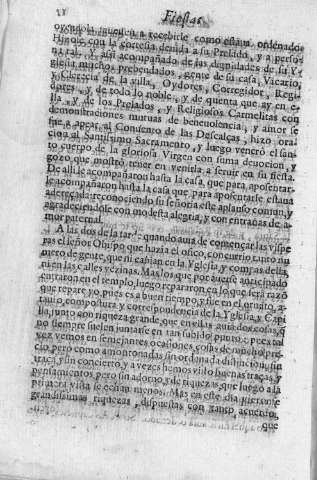 Fiestas
oyendola, pueden a recebirle como estauan ordenados
con la cortesia deuida a su Prelado, y a perso
na tal. Y assi acompañado de las dignidades de su Y
glesia, muchos prebendados, gente de su casa, Vicario,
y Clerecia de la villa, Oydores, Corregidor, Regi
dores, y de todo lo noble, y de quenta que ay en e
lla, y de los Prelados, y Religiosos Carmelitas con
demonstraciones mutuas de beneuolencia, y amor se
fue a apear al Conuento de las Descalças, hizo ora
cion al Santissimo Sacramento, y luego venerò el san
to cuerpo de la gloriosa Virgen con suma deuocion, y
gozo que mostrò tener en venirla a seruir en su fiesta.
De alli le acompañaron hasta la casa que para aposentar
le acompañaron hasta la casa que para aposentarle estaua
adereçada: reconociendo su señoria este aplauso comun, y
agradeciendole con modesta alegria, y con entrañas de a-
mor paternal.
A las dos de la tarde quando auia de començar las vispe
ras el señor Obispo que hazia el oficio, concurrio tanto nu
mero de gente, que ni cabian en la Yglesia, y compas della,
ni en las calles vezinas. Mas los que por auerse anticipado
entraron en el templo, luego repararon en lo que serà razõ
que repare yo pues es a buen tiempo, y fue en el ornato, a-
tauio, compostura y correspondencia de la Yglesia, y Capi
lla, junto con riqueza grande, que en ellas auia dos cosas q̃
no siempre suelen juntarse en tan subido punto: pues tal
vez vemos en semejantes ocasiones cosas de mucho pre-
cio, pero como amontonadas sin ordenada distincion, sin
traça y sin concierto, y a vezes hemos visto buenas traças, y
pensamientos pero sin adorno, y de riquezas que luego a la
primera vista se echan menos. Mas en este dia
grandissimas riquezas, dispuestas con tanto acuerdo,
que